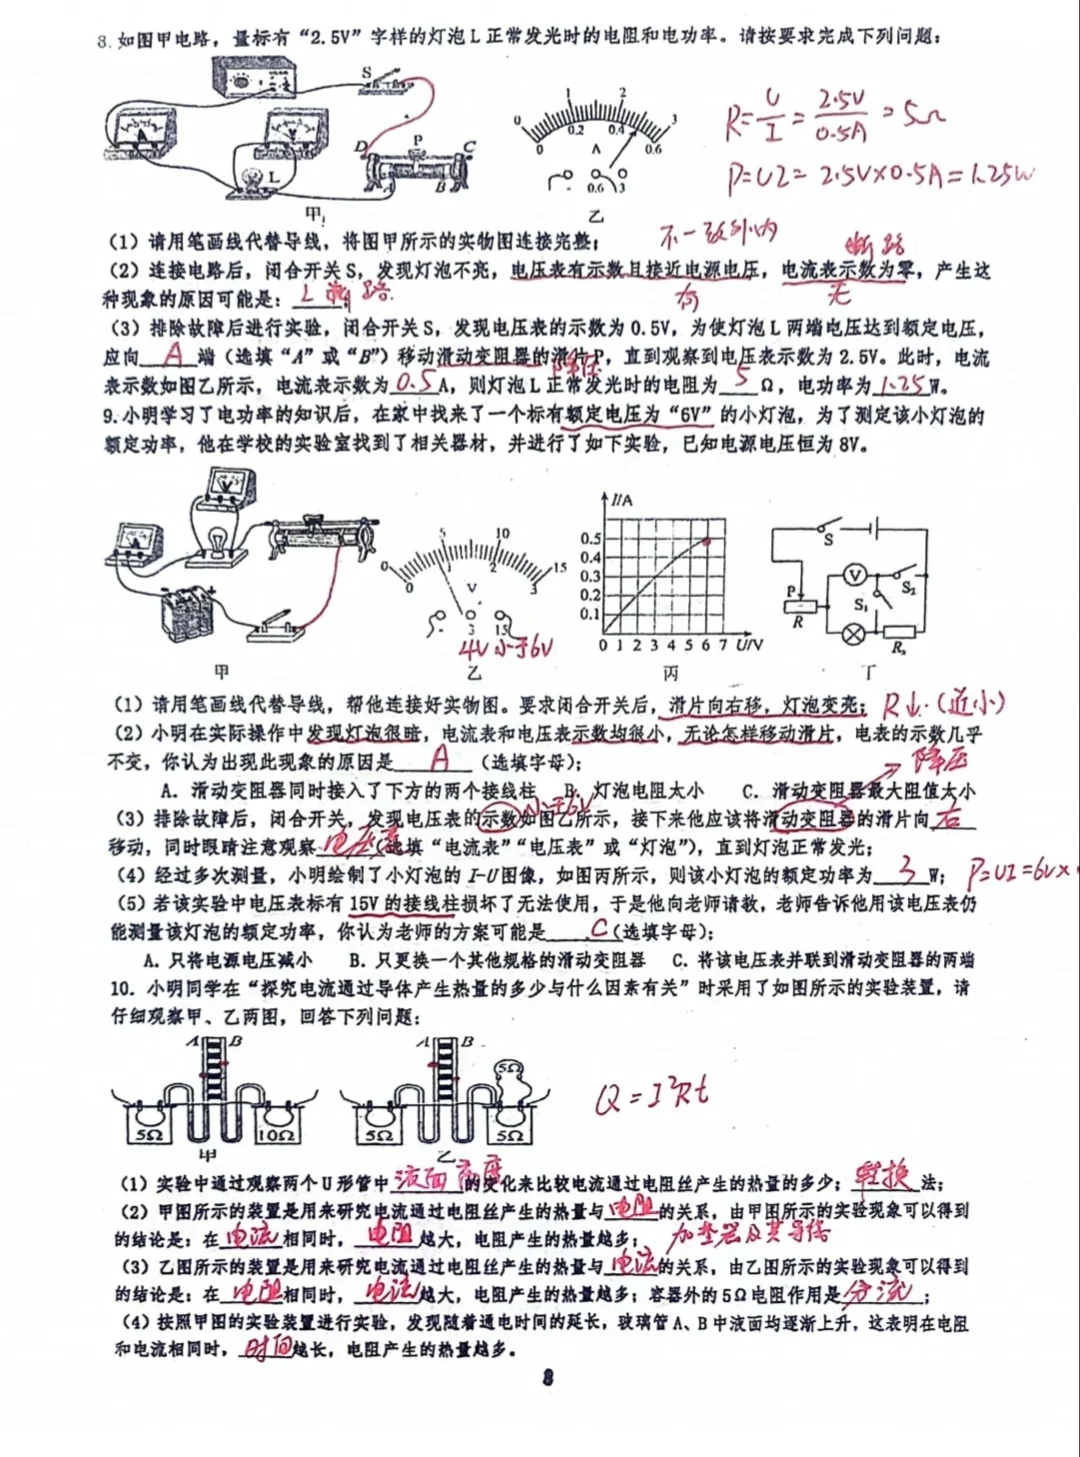 8.如图甲电路，量标有“2.5V”字样的灯泡L正常发光时的电阻和电功率。请按要求完成下列问题：
S
A
V
L
D
P
C
A
B
甲
0 1 2 3
0 0.2 0.4 0.6
A
0.6 3
乙
R=U/I=2.5V/0.5A=5Ω
P=UI=2.5V×0.5A=1.25W
不一致外内
断路
（1）请用笔画线代替导线，将图甲所示的实物图连接完整；
（2）连接电路后，闭合开关S，发现灯泡不亮，电压表有示数且接近电源电压，电流表示数为零，产生这
有 无
种现象的原因可能是：L断路.
（3）排除故障后进行实验，闭合开关S，发现电压表的示数为0.5V，为使灯泡L两端电压达到额定电压，
应向A端（选填“A”或“B”）移动滑动变阻器的滑片P，直到观察到电压表示数为2.5V。此时，电流
降压
表示数如图乙所示，电流表示数为0.5A，则灯泡L正常发光时的电阻为5Ω，电功率为1.25W。
9.小明学习了电功率的知识后，在家中找来了一个标有额定电压为“6V”的小灯泡，为了测定该小灯泡的
额定功率，他在学校的实验室找到了相关器材，并进行了如下实验，已知电源电压恒为8V。
甲
0 5 10 15
0 1 2 3
V
3 15
4V小于6V
乙
I/A
0.5
0.4
0.3
0.2
0.1
0 1 2 3 4 5 6 7 U/V
丙
S
V
S₂
P
S₁
R
R₀
丁
（1）请用笔画线代替导线，帮他连接好实物图。要求闭合开关后，滑片向右移，灯泡变亮；R↓.(道小)
（2）小明在实际操作中发现灯泡很暗，电流表和电压表示数均很小，无论怎样移动滑片，电表的示数几乎
不变，你认为出现此现象的原因是A（选填字母）；
降压
A．滑动变阻器同时接入了下方的两个接线柱 B．灯泡电阻太小 C．滑动变阻器最大阻值太小
小于6V
（3）排除故障后，闭合开关，发现电压表的示数如图乙所示，接下来他应该将滑动变阻器的滑片向右
移动，同时眼睛注意观察电压表（选填“电流表”“电压表”或“灯泡”），直到灯泡正常发光；
（4）经过多次测量，小明绘制了小灯泡的I-U图像，如图丙所示，则该小灯泡的额定功率为3W；P=UI=6V×
（5）若该实验中电压表标有15V的接线柱损坏了无法使用，于是他向老师请教，老师告诉他用该电压表仍
能测量该灯泡的额定功率，你认为老师的方案可能是C（选填字母）；
A．只将电源电压减小 B．只更换一个其他规格的滑动变阻器 C．将该电压表并联到滑动变阻器的两端
10．小明同学在“探究电流通过导体产生热量的多少与什么因素有关”时采用了如图所示的实验装置，请
仔细观察甲、乙两图，回答下列问题：
A B
5Ω 10Ω
甲
A B
5Ω
5Ω 5Ω
乙
Q=I²Rt
（1）实验中通过观察两个U形管中液面高度的变化来比较电流通过电阻丝产生的热量的多少；转换法；
（2）甲图所示的装置是用来研究电流通过电阻丝产生的热量与电阻的关系，由甲图所示的实验现象可以得到
的结论是：在电流相同时，电阻越大，电阻产生的热量越多；
（3）乙图所示的装置是用来研究电流通过电阻丝产生的热量与电流的关系，由乙图所示的实验现象可以得到
的结论是：在电阻相同时，电流越大，电阻产生的热量越多；容器外的5Ω电阻作用是分流；
（4）按照甲图的实验装置进行实验，发现随着通电时间的延长，玻璃管A、B中液面均逐渐上升，这表明在电阻
和电流相同时，时间越长，电阻产生的热量越多。
8